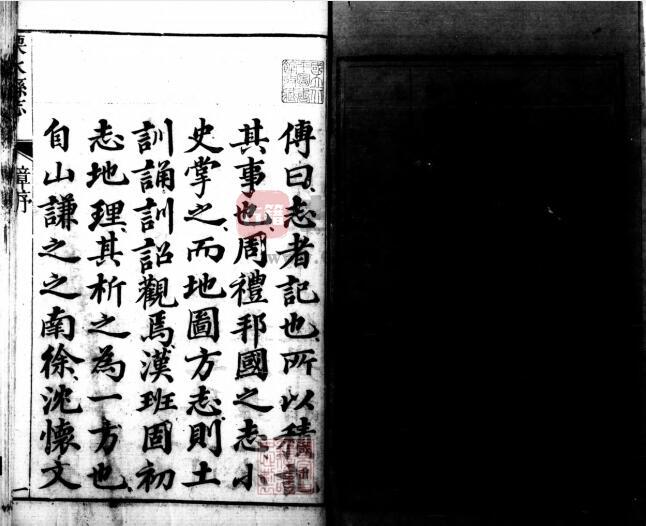 傳曰志者記也所以積記
其事也周禮邦國之志小
史掌之而地圖方志則土
訓誦訓詔觀焉漢班固初
志地理其析之為一方也
自山謙之之南徐沈懷文
水縣志
序
一